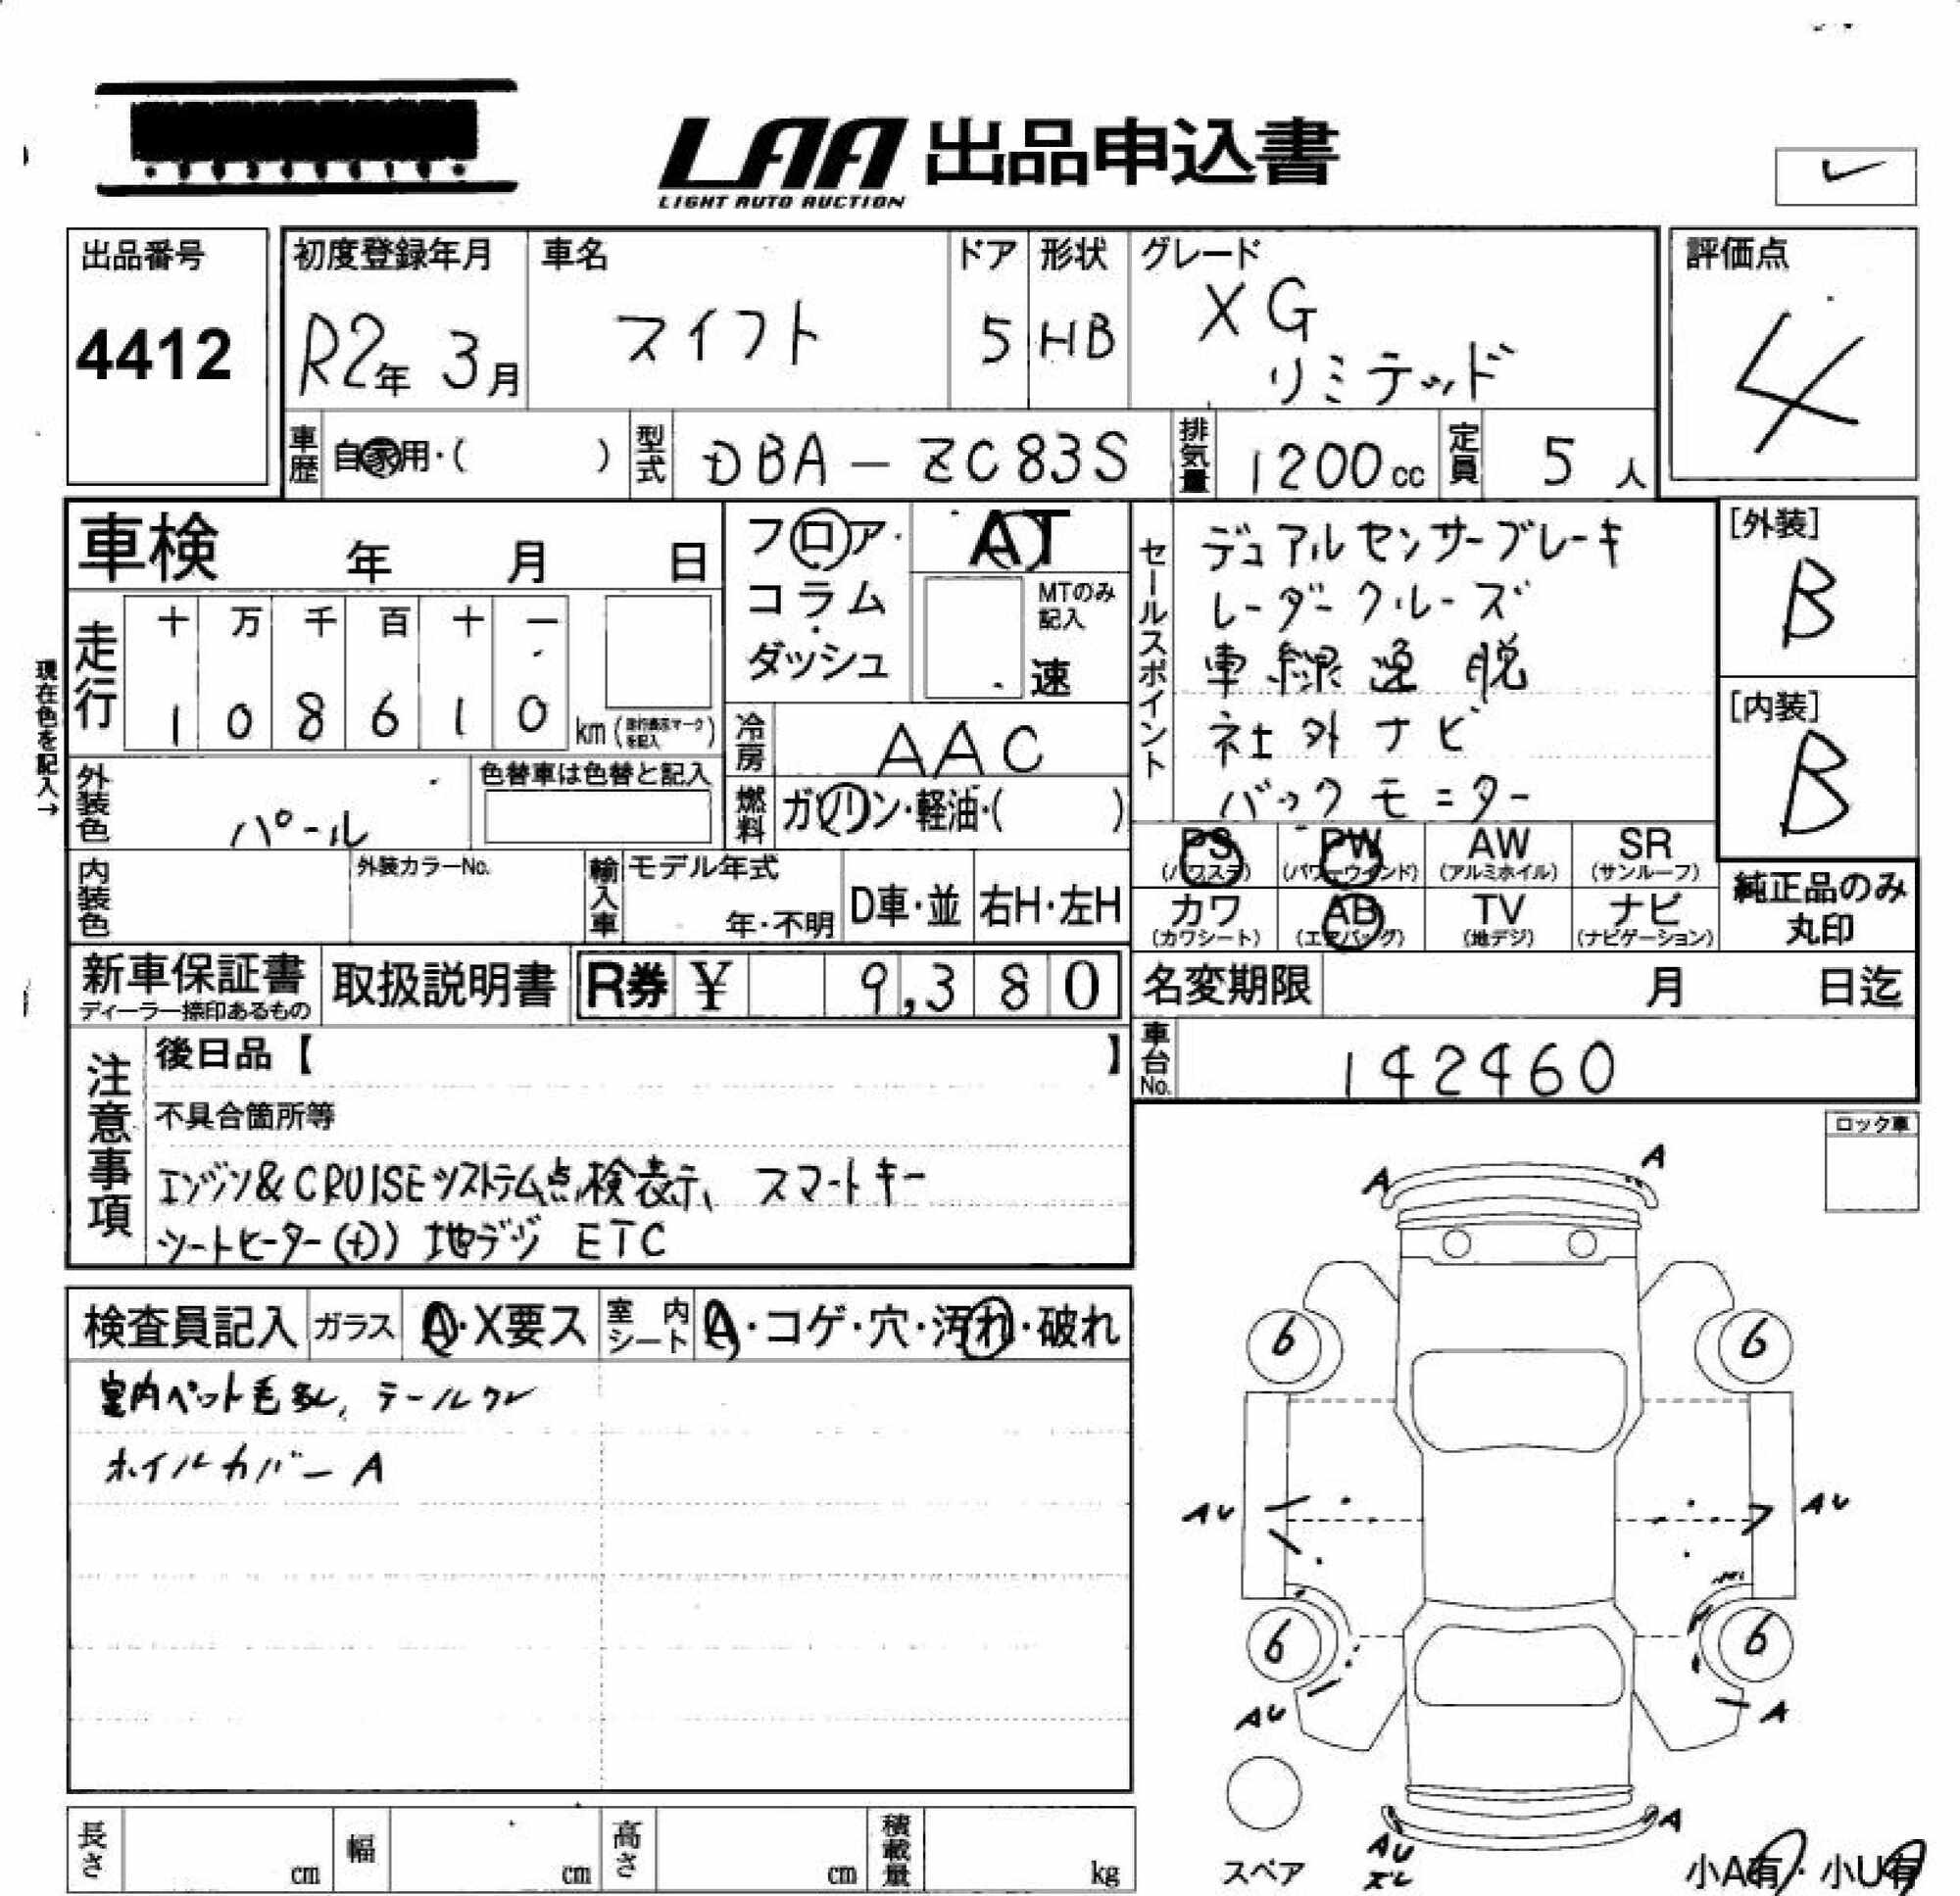 LAA 出品申込書
LIGHT AUTO AUCTION
出品番号
4412
初度登録年月
R2年 3月
車名
スイフト
ドア
5
形状
HB
グレード
XG
リミテッド
評価点
4
車歴
自家用・( )
型式
DBA-ZC83S
排気量
1200cc
定員
5人
車検 年 月 日
フロア・
コラム
・
ダッシュ
AT
MTのみ
記入
速
セールスポイント
デュアルセンサーブレーキ
レーダークルーズ
車線逸脱
社外ナビ
バックモニター
[外装]
B
[内装]
B
現在色を記入→
走行
十 万 千 百 十 一
1 0 8 6 1 0 km
冷房
AAC
外装色
パール
色替車は色替と記入
燃料
ガソリン・軽油・( )
内装色
外装カラーNo.
輸入車
モデル年式
年・不明
D車・並
右H・左H
PS
(パワステ)
PW
(パワーウインド)
AW
(アルミホイル)
SR
(サンルーフ)
カワ
(カワシート)
AB
(エアバッグ)
TV
(地デジ)
ナビ
(ナビゲーション)
純正品のみ
丸印
新車保証書
ディーラー捺印あるもの
取扱説明書
R券 ¥ 9,380
名変期限 月 日迄
車台No.
142460
注意事項
後日品【 】
不具合箇所等
エンジン&CRUISEシステム点検表示、スマートキー
シートヒーター(土)) 地デジ ETC
ロック車
検査員記入
ガラス
A・X要ス
室内シート
A・コゲ・穴・汚れ・破れ
室内ペット毛多し、テールワレ
ホイルカバーA
A
A
6
6
AU
AU
6
6
AU
A
スペア
AU
ズレ
A
小A有・小U有
長さ cm
幅 cm
高さ cm
積載量 kg